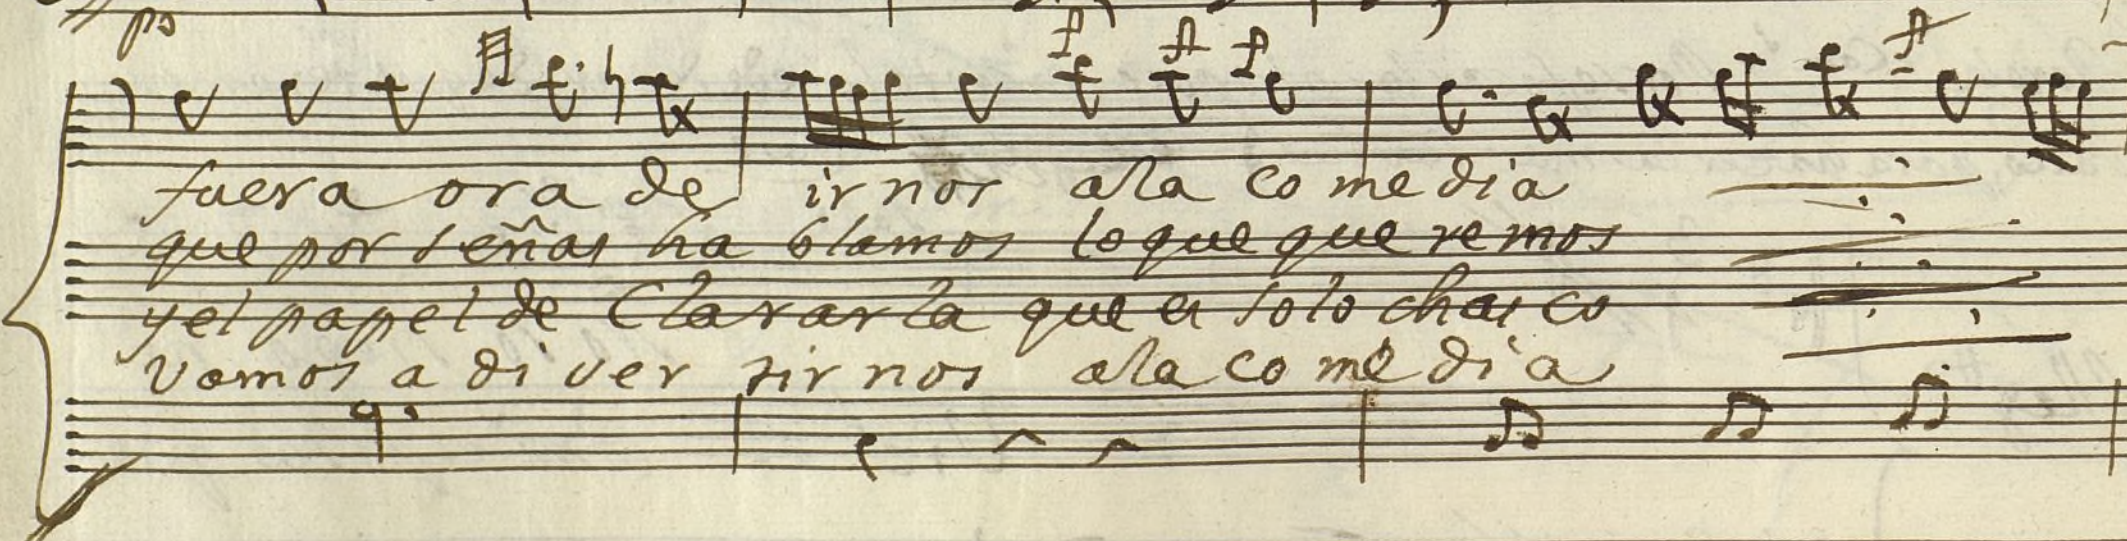 ps
fuera ora de ir nos ala co me dia
que por señas ha blamos lo que que remos
y el papel de Clararla que es solo chas co
vamos a di ver tir nos ala co me dia